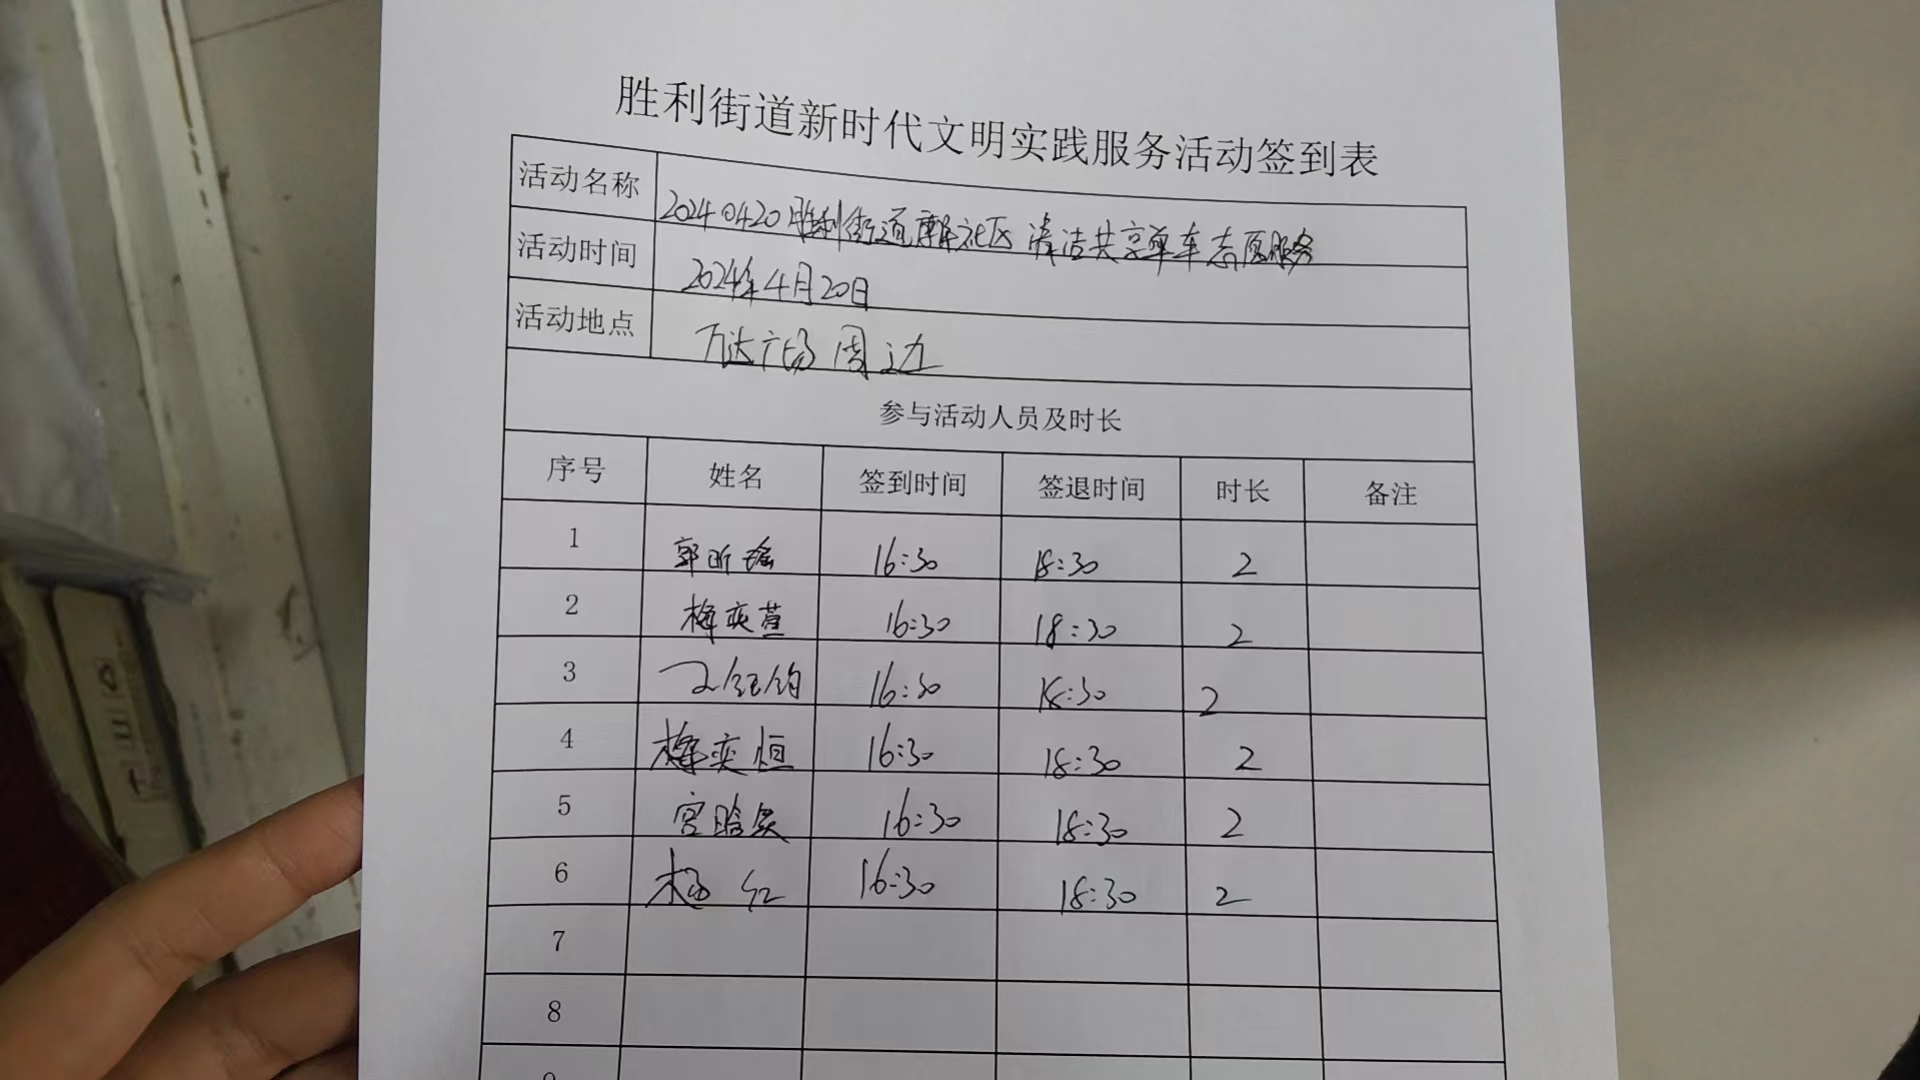 胜利街道新时代文明实践服务活动签到表
活动名称 20240420胜利街道社区清洁共享单车志愿服务
活动时间 2024年4月20日
活动地点 万达广场周边
参与活动人员及时长
序号 姓名 签到时间 签退时间 时长 备注
1 郭昕瑶 16:30 18:30 2
2 梅奕萱 16:30 18:30 2
3 16:30 18:30 2
4 梅奕恒 16:30 18:30 2
5 宫晗 16:30 18:30 2
6 红 16:30 18:30 2
7
8